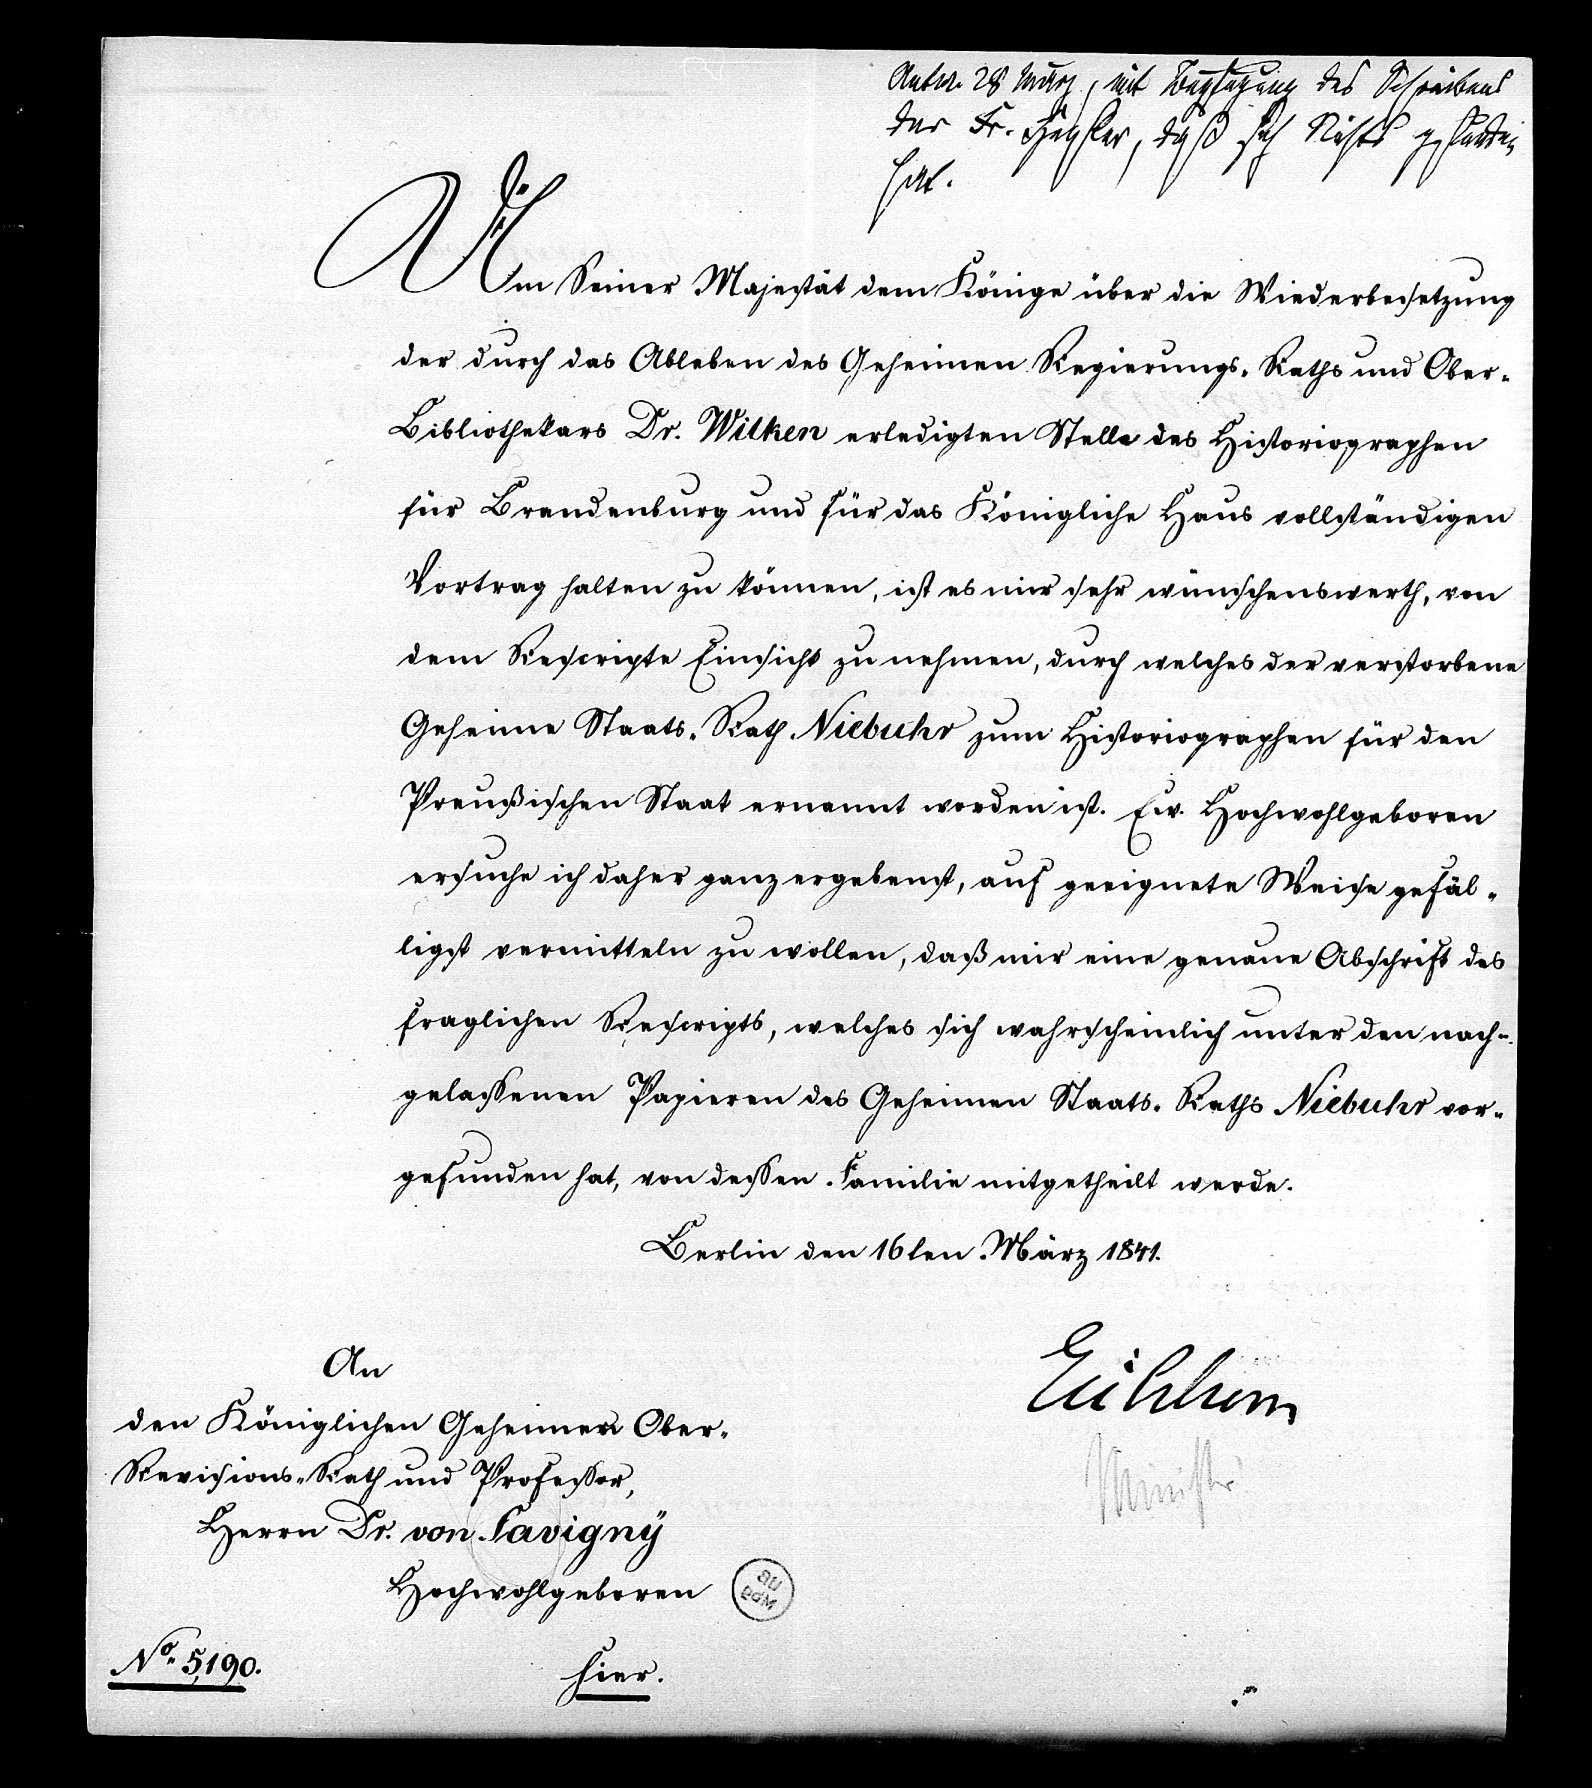 Antw. 28 März, mit Beyfügung des Schreibens
der Fr. Hensler, daß sich Nichts gefunden
hat.
Um Seiner Majestät dem Könige über die Wiederbesetzung
der durch das Ableben des Geheimen Regierungs-Raths und Ober-
Bibliothekars Dr. Wilken erledigten Stelle des Historiographen
für Brandenburg und für das Königliche Haus vollständigen
Vortrag halten zu können, ist es mir sehr wünschenswerth, von
dem Rescripte Einsicht zu nehmen, durch welches der verstorbene
Geheime Staats-Rath Niebuhr zum Historiographen für den
Preußischen Staat ernannt worden ist. Ew. Hochwohlgeboren
ersuche ich daher ganz ergebenst, auf geeignete Weise gefäl-
ligst vermitteln zu wollen, daß mir eine genaue Abschrift des
fraglichen Rescripts, welches sich wahrscheinlich unter den nach-
gelassenen Papieren des Geheimen Staats-Raths Niebuhr vor-
gefunden hat, von dessen Familie mitgetheilt werde.
Berlin den 16ten März 1841.
Eichhorn
Minister
An
den Königlichen Geheimen Ober-
Revisions-Rath und Professor,
Herrn Dr. von Savignÿ
Hochwohlgeboren
hier.
No. 5,190.